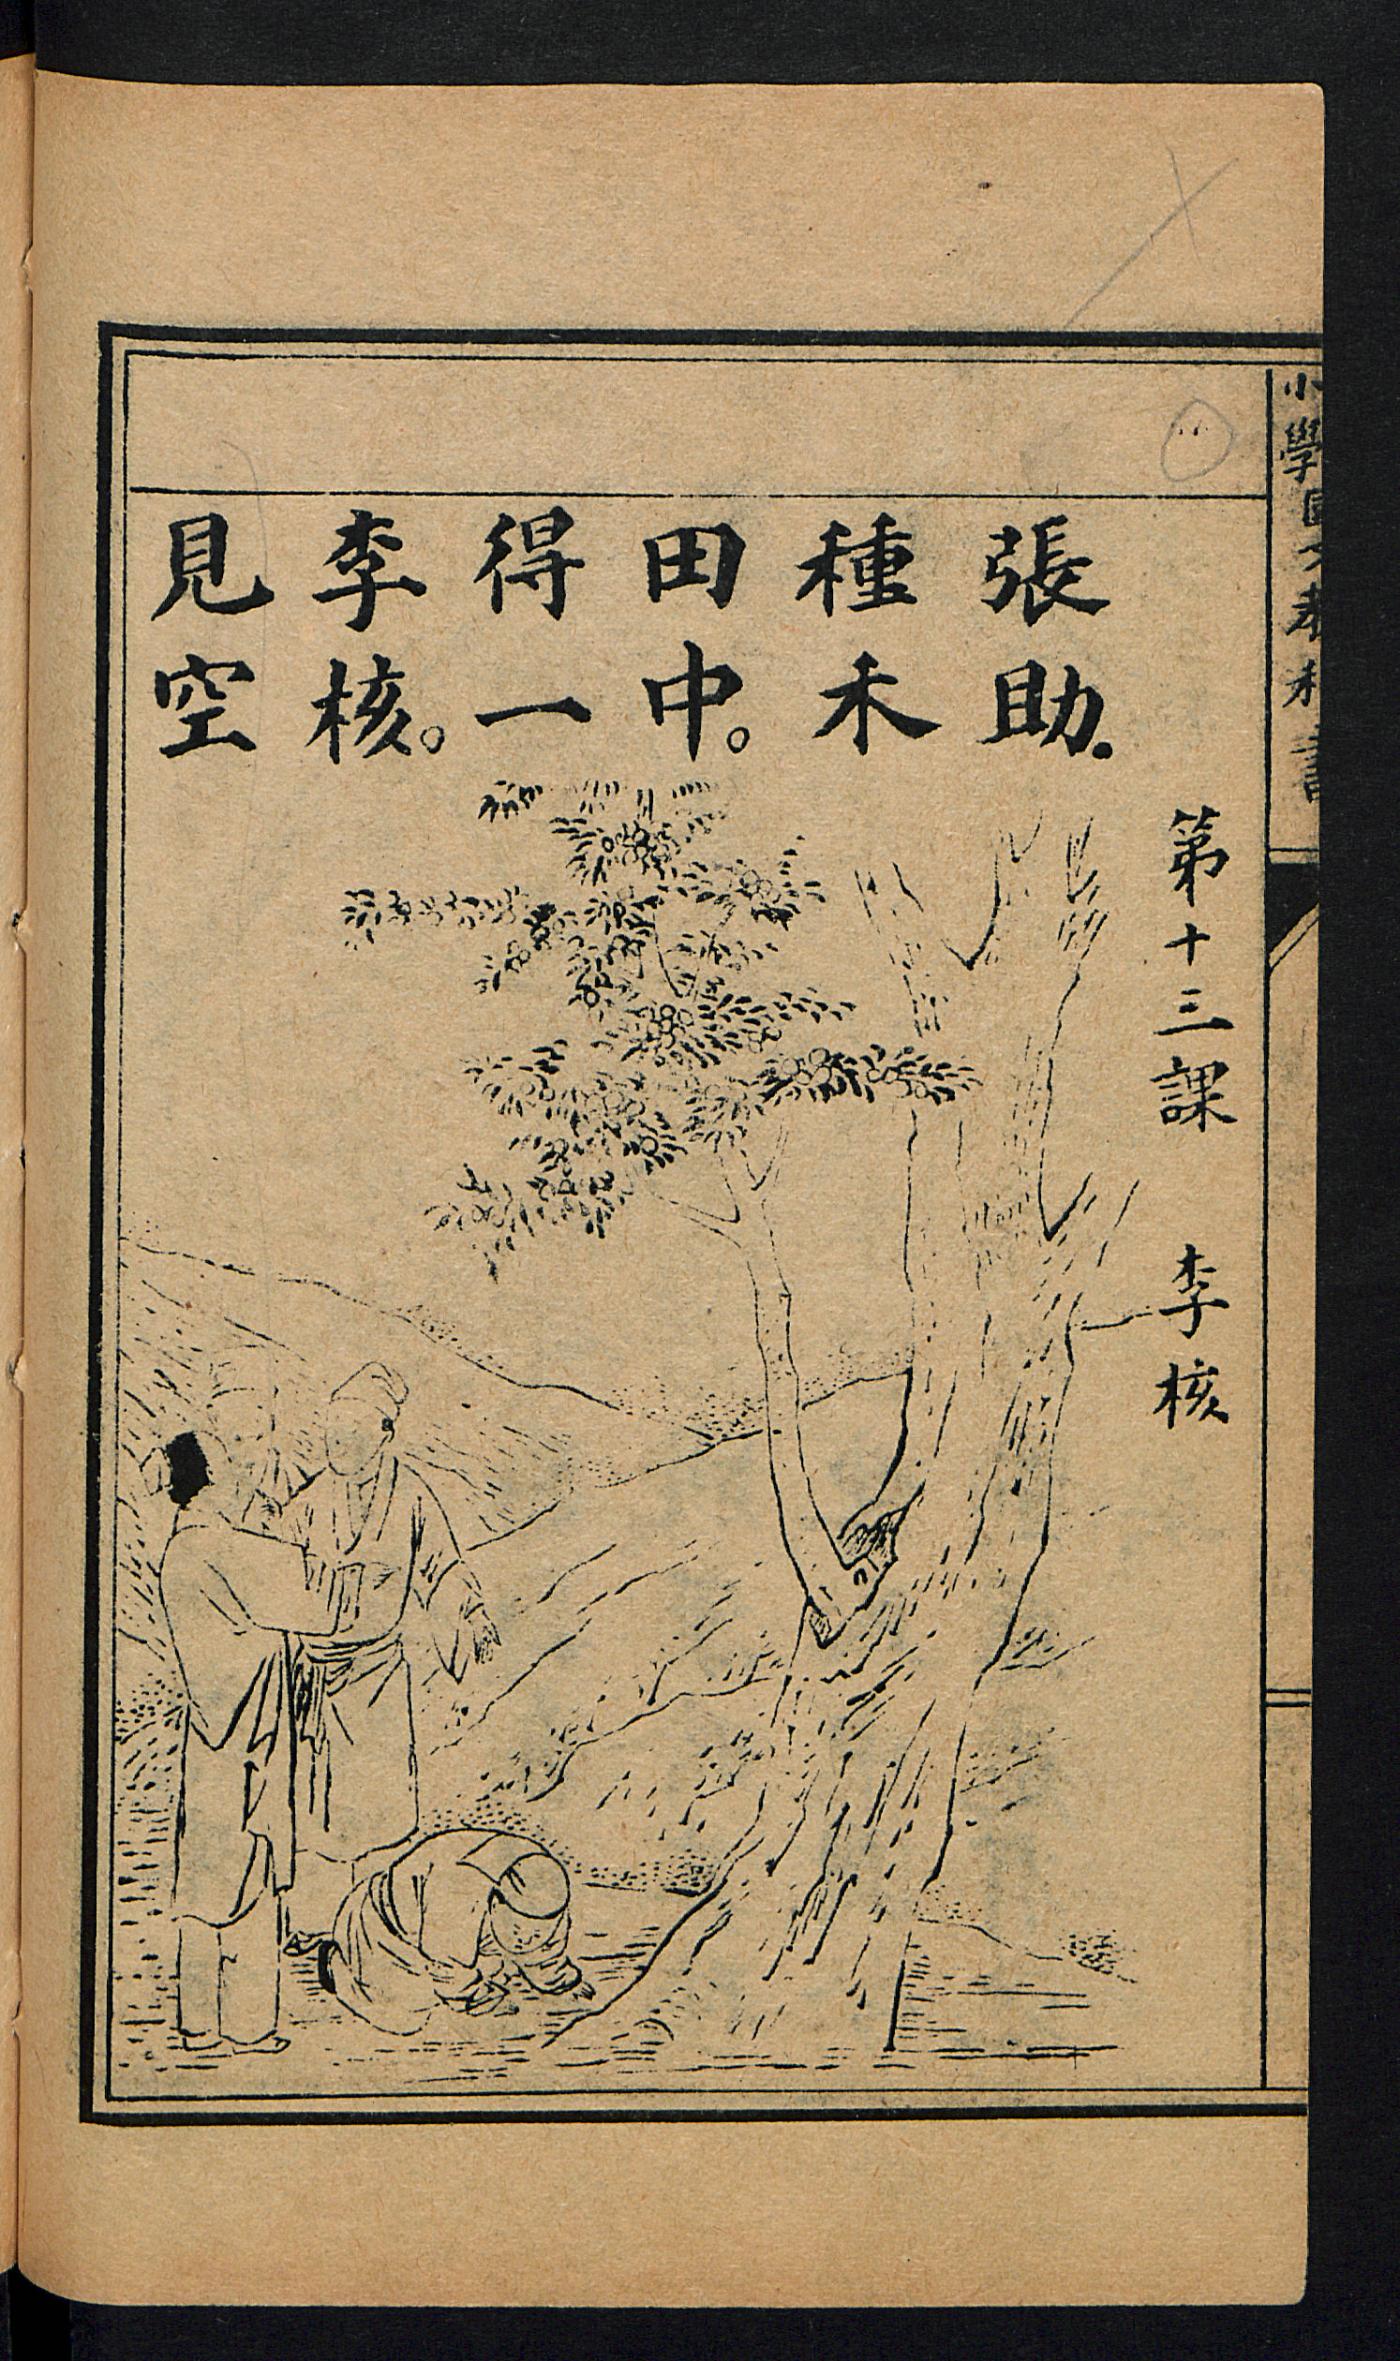 第十三課 李核
張助.
種禾
田中。
得一
李核。
見空
小學國文教科書